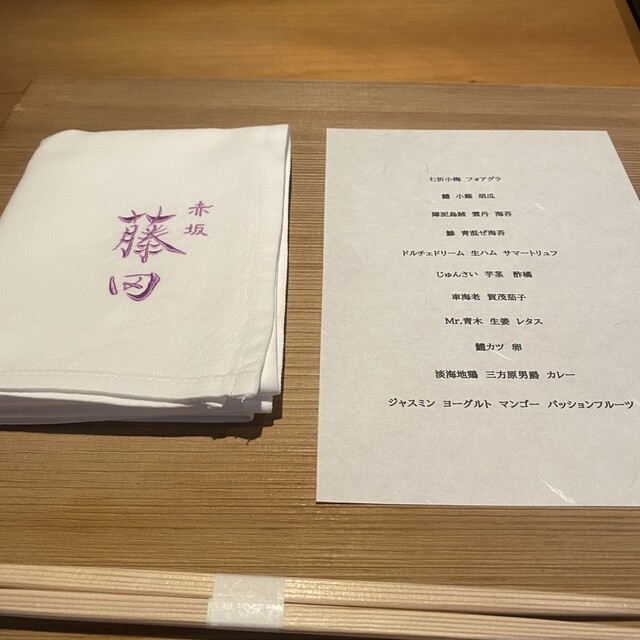 赤坂
藤田
七折小梅 フォアグラ
鱧 小鮑 胡瓜
障泥烏賊 雲丹 海苔
鯵 青混ぜ海苔
ドルチェドリーム 生ハム サマートリュフ
じゅんさい 芋茎 酢橘
車海老 賀茂茄子
Mr.青木 生姜 レタス
鱧カツ 卵
淡海地鶏 三方原男爵 カレー
ジャスミン ヨーグルト マンゴー パッションフルーツ